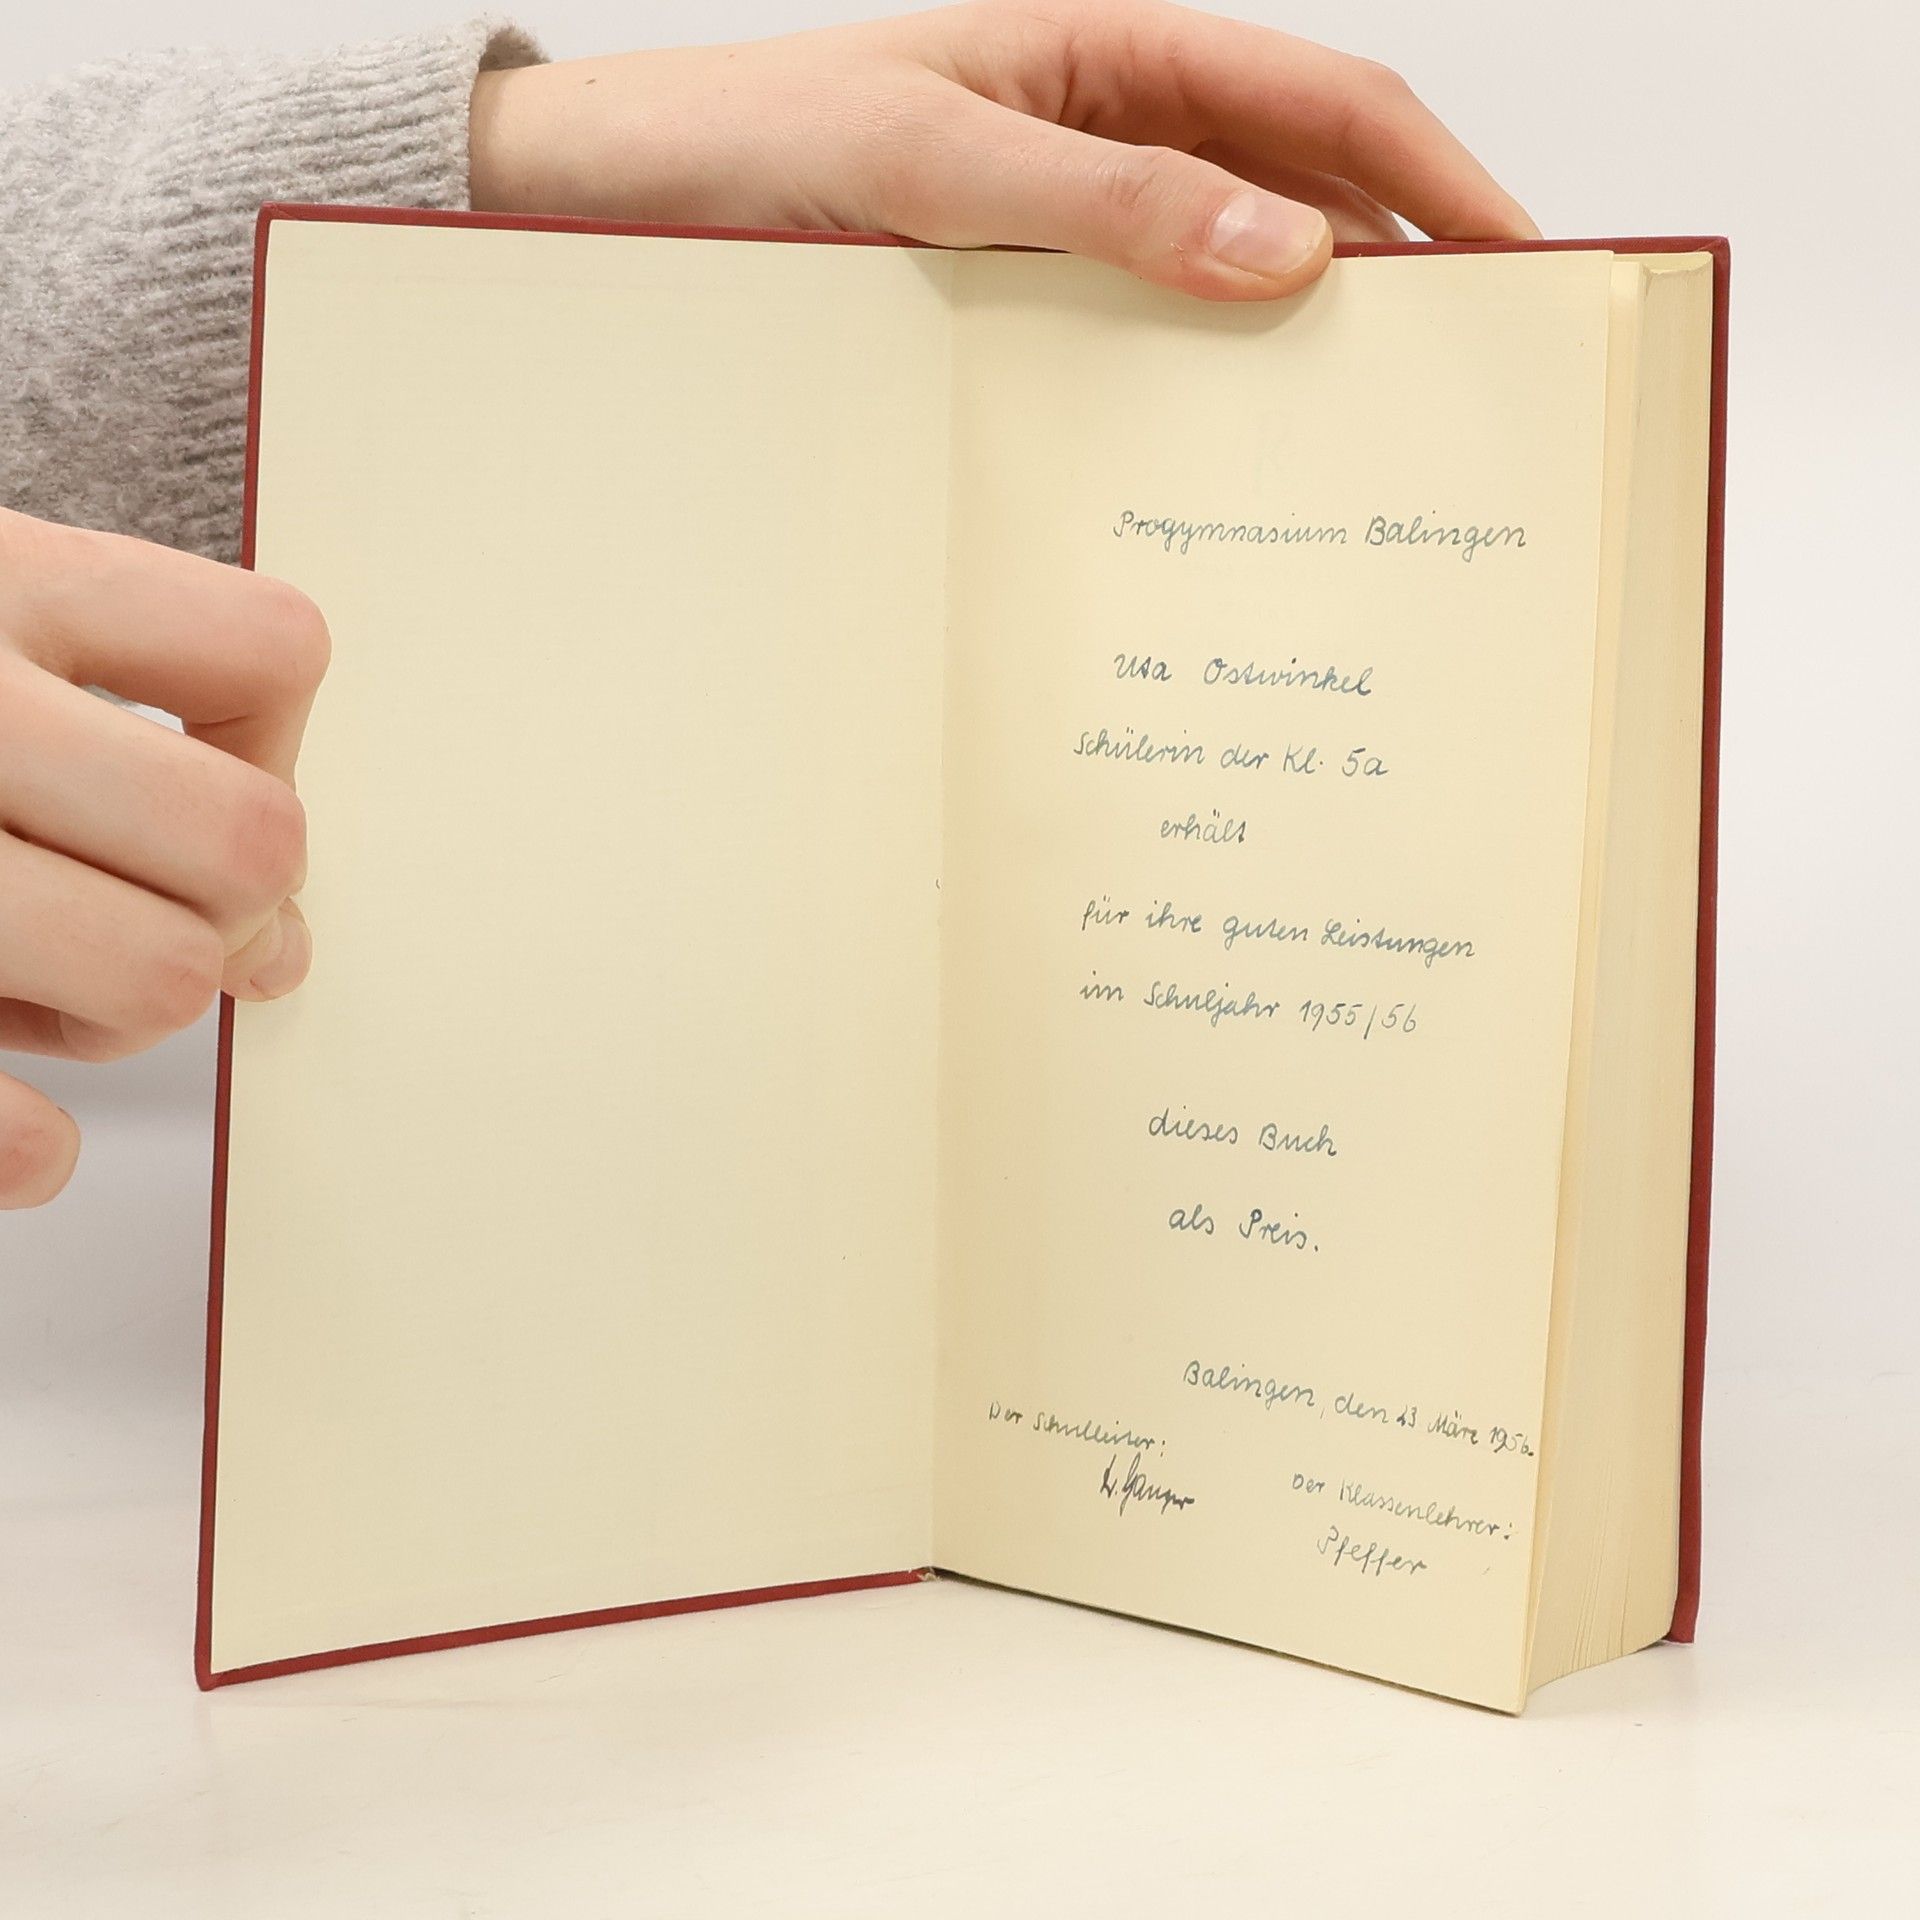 Progymnasium Balingen
Uta Ostwinkel
Schülerin der Kl. 5a
erhält
für ihre guten Leistungen
im Schuljahr 1955/56
dieses Buch
als Preis.
Balingen, den 23. März 1956.
Der Schulleiter:
Der Klassenlehrer:
Pfeffer